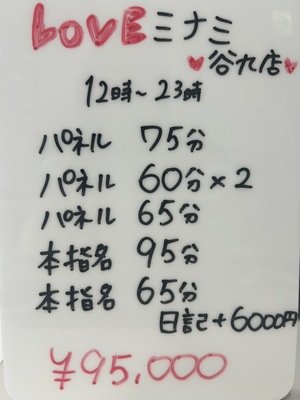 LOVEミナミ
♥谷九店♥
12時~23時
パネル 75分
パネル 60分×2
パネル 65分
本指名 95分
本指名 65分
日記+6000円
¥95,000